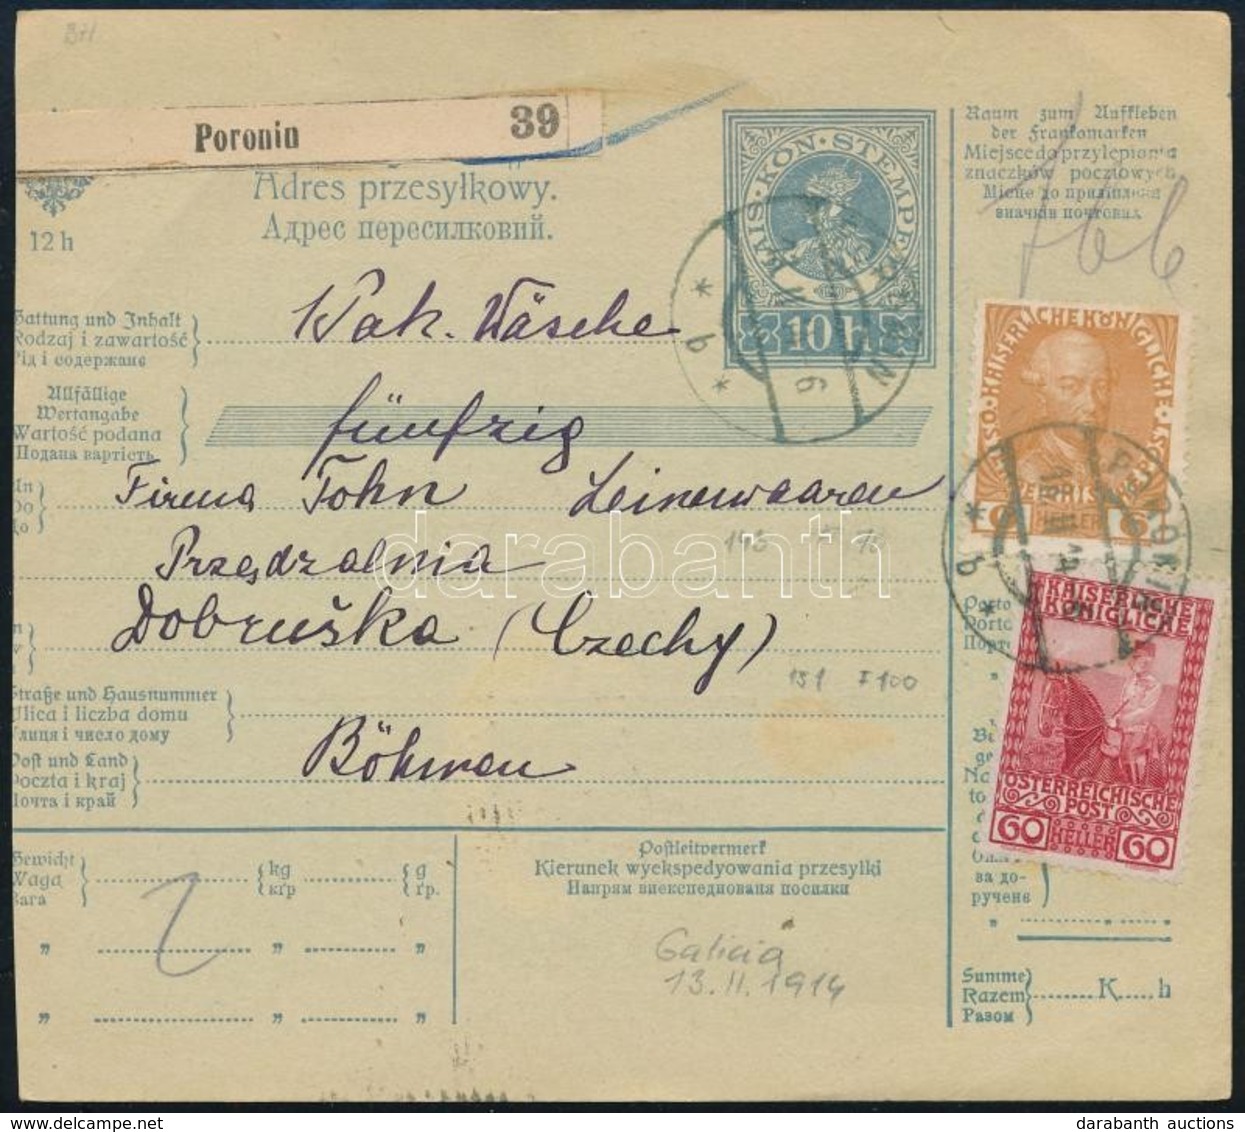 B71
Poronin 39
Adres przesyłkowy.
Адрес пересилковий.
12 h
KAIS·KÖN·STEMPEL
10 h.
Raum zum Aufkleben
der Frankomarken
Miejsce do przylepiania
znaczków pocztowych
Місце до приліплення
значків почтових
766
Gattung und Inhalt
Rodzaj i zawartość
Рід і содержанє
Pak. Wäsche
Allfällige
Wertangabe
Wartość podana
Подана вартість
fünfzig
An
Do
До
Firma John Leinenwaaren
Przędzalnia
Dobruška (Czechy)
Straße und Hausnummer
Ulica i liczba domu
Улиця і число дому
Post und Land
Poczta i kraj
Почта і край
Böhmen
151 F 100
KAISERLICHE KÖNIGLICHE
6 HELLER 6
PORONIN
* b *
Porto
Porto
KAISERLICHE
KÖNIGLICHE
ÖSTERREICHISCHE
POST
60 HELLER 60
за до-
ручене
Gewicht
Waga
Вага
kg
кґр
g
ґр.
2
Postleitvermerk
Kierunek wyekspedyowania przesyłki
Напрям виекспедиованя посилки
Galicia
13.II.1914
Summe
Razem
Разом
K h
darabanth
www.delcampe.net
darabanth auctions